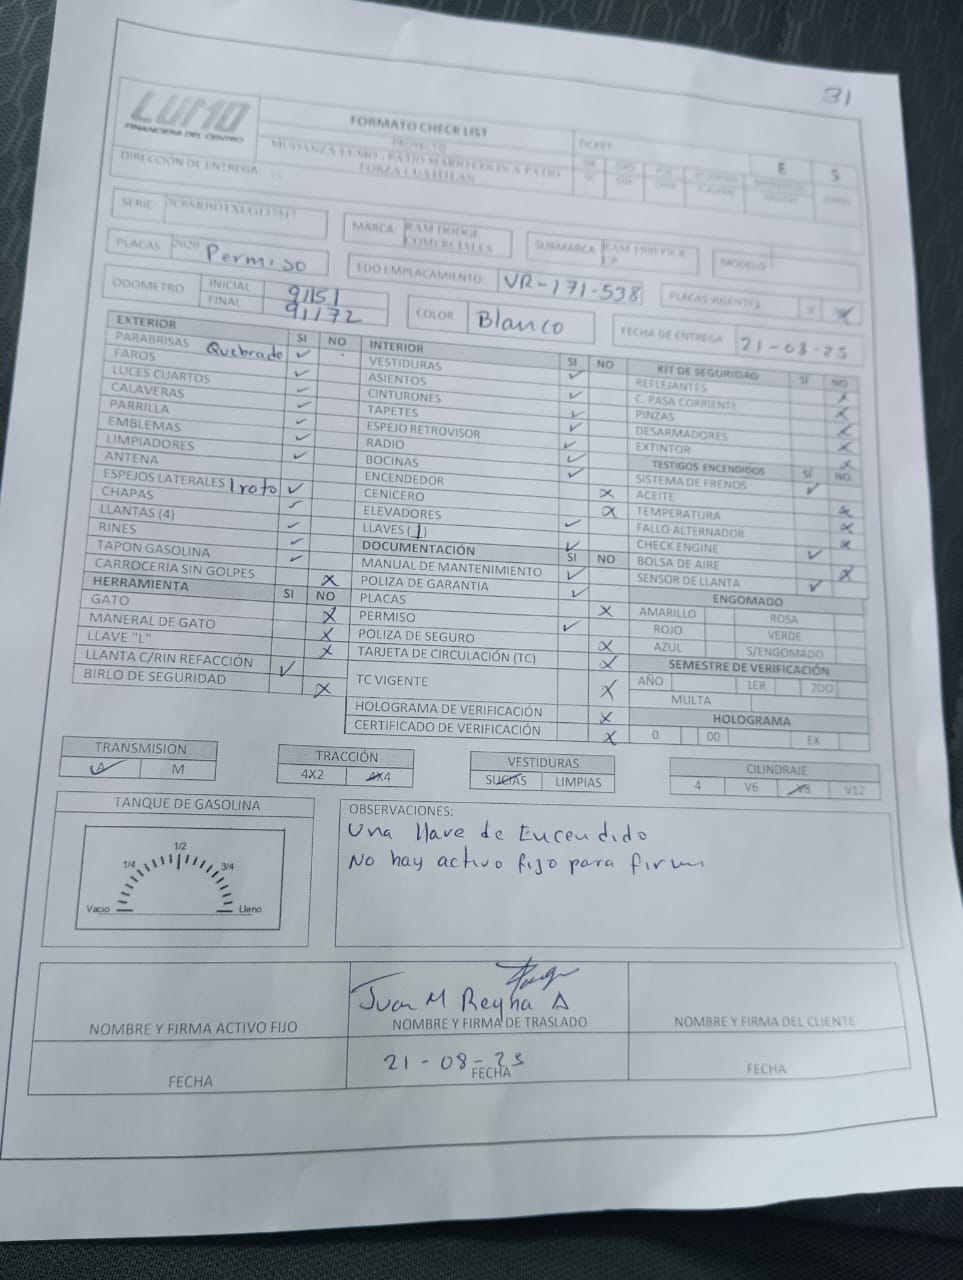 31
LUMO
FINANCIERA DEL CENTRO
FORMATO CHECK LIST
PROYECTO
MUDANZA LUMO - PATIO MARIO COLIN A PATIO
FORZA CUATITLAN
TICKET
E S
DIRECCIÓN DE ENTREGA:
SERIE:
MARCA: RAM DODGE COMERCIALES
SUBMARCA
MODELO
PLACAS 2020 Permiso
EDO EMPLACAMIENTO VR-171-538
PLACAS VIGENTES SI
ODOMETRO INICIAL 91151
FINAL 91172
COLOR Blanco
FECHA DE ENTREGA 21-08-25
EXTERIOR SI NO
PARABRISAS Quebrado ✓
FAROS ✓
LUCES CUARTOS ✓
CALAVERAS ✓
PARRILLA ✓
EMBLEMAS ✓
LIMPIADORES ✓
ANTENA
ESPEJOS LATERALES 1 roto ✓
CHAPAS ✓
LLANTAS (4)
RINES
TAPON GASOLINA
CARROCERIA SIN GOLPES X
HERRAMIENTA SI NO
GATO X
MANERAL DE GATO X
LLAVE "L" X
LLANTA C/RIN REFACCIÓN ✓
BIRLO DE SEGURIDAD X
INTERIOR SI NO
VESTIDURAS
ASIENTOS
CINTURONES
TAPETES
ESPEJO RETROVISOR
RADIO
BOCINAS
ENCENDEDOR
CENICERO X
ELEVADORES
LLAVES (1)
DOCUMENTACIÓN SI NO
MANUAL DE MANTENIMIENTO ✓
POLIZA DE GARANTIA ✓
PLACAS X
PERMISO ✓
POLIZA DE SEGURO X
TARJETA DE CIRCULACIÓN (TC) X
TC VIGENTE X
HOLOGRAMA DE VERIFICACIÓN X
CERTIFICADO DE VERIFICACIÓN X
KIT DE SEGURIDAD SI NO
REFLEJANTES X
C. PASA CORRIENTE X
PINZAS X
DESARMADORES X
EXTINTOR X
TESTIGOS ENCENDIDOS SI NO
SISTEMA DE FRENOS ✓
ACEITE X
TEMPERATURA X
FALLO ALTERNADOR X
CHECK ENGINE ✓
BOLSA DE AIRE X
SENSOR DE LLANTA ✓
ENGOMADO
AMARILLO ROSA
ROJO VERDE
AZUL S/ENGOMADO
SEMESTRE DE VERIFICACIÓN
AÑO 1ER 2DO
MULTA
HOLOGRAMA
0 00 EX
TRANSMISIÓN
A M
TRACCIÓN
4X2 4X4
VESTIDURAS
SUCIAS LIMPIAS
CILINDRAJE
4 V6 V8 V12
TANQUE DE GASOLINA
1/2
1/4 3/4
Vacio Lleno
OBSERVACIONES:
Una llave de Encendido
No hay activo fijo para firm
Juan M Reyna A
NOMBRE Y FIRMA ACTIVO FIJO
NOMBRE Y FIRMA DE TRASLADO
NOMBRE Y FIRMA DEL CLIENTE
21-08-25
FECHA
FECHA
FECHA